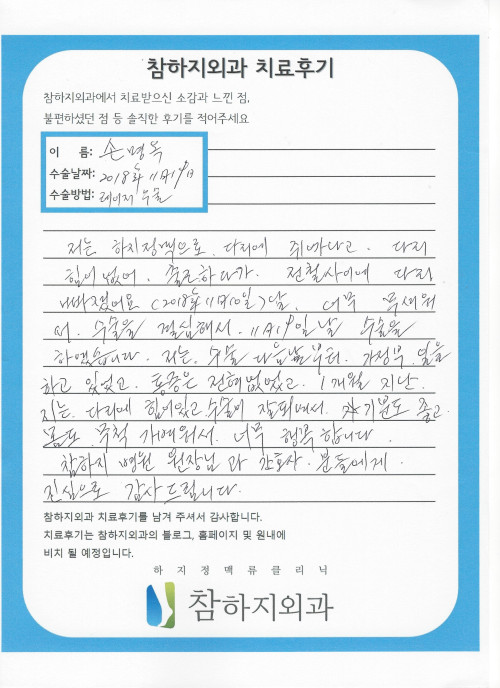 참하지외과 치료후기
참하지외과에서 치료받으신 소감과 느낀 점,
불편하셨던 점 등 솔직한 후기를 적어주세요
이 름: 손명옥
수술날짜: 2018년 11月19日
수술방법: 레이저 수술
저는 하지정맥으로 다리에 쥐가나고. 다리
힘이 없어. 출근하다가. 전철사이에 다리
빠졌어요 (2018年 11月10일)날. 너무 무서워
서. 수술을 결심해서. 11月19일날 수술을
하였습니다. 저는. 수술 다음날부터. 가정부 일을
하고 있었고. 통증은 전혀 없었고. 1개월 지난.
지는. 다리에 힘이있고 수술이 잘되여서. 기분도 좋고.
몸도 무척 가벼워서. 너무 행복합니다.
참하지 병원 원장님과 간호사. 분들에게.
진심으로 감사드립니다.
참하지외과 치료후기를 남겨 주셔서 감사합니다.
치료후기는 참하지외과의 블로그, 홈페이지 및 원내에
비치 될 예정입니다.
하지정맥류클리닉
참하지외과